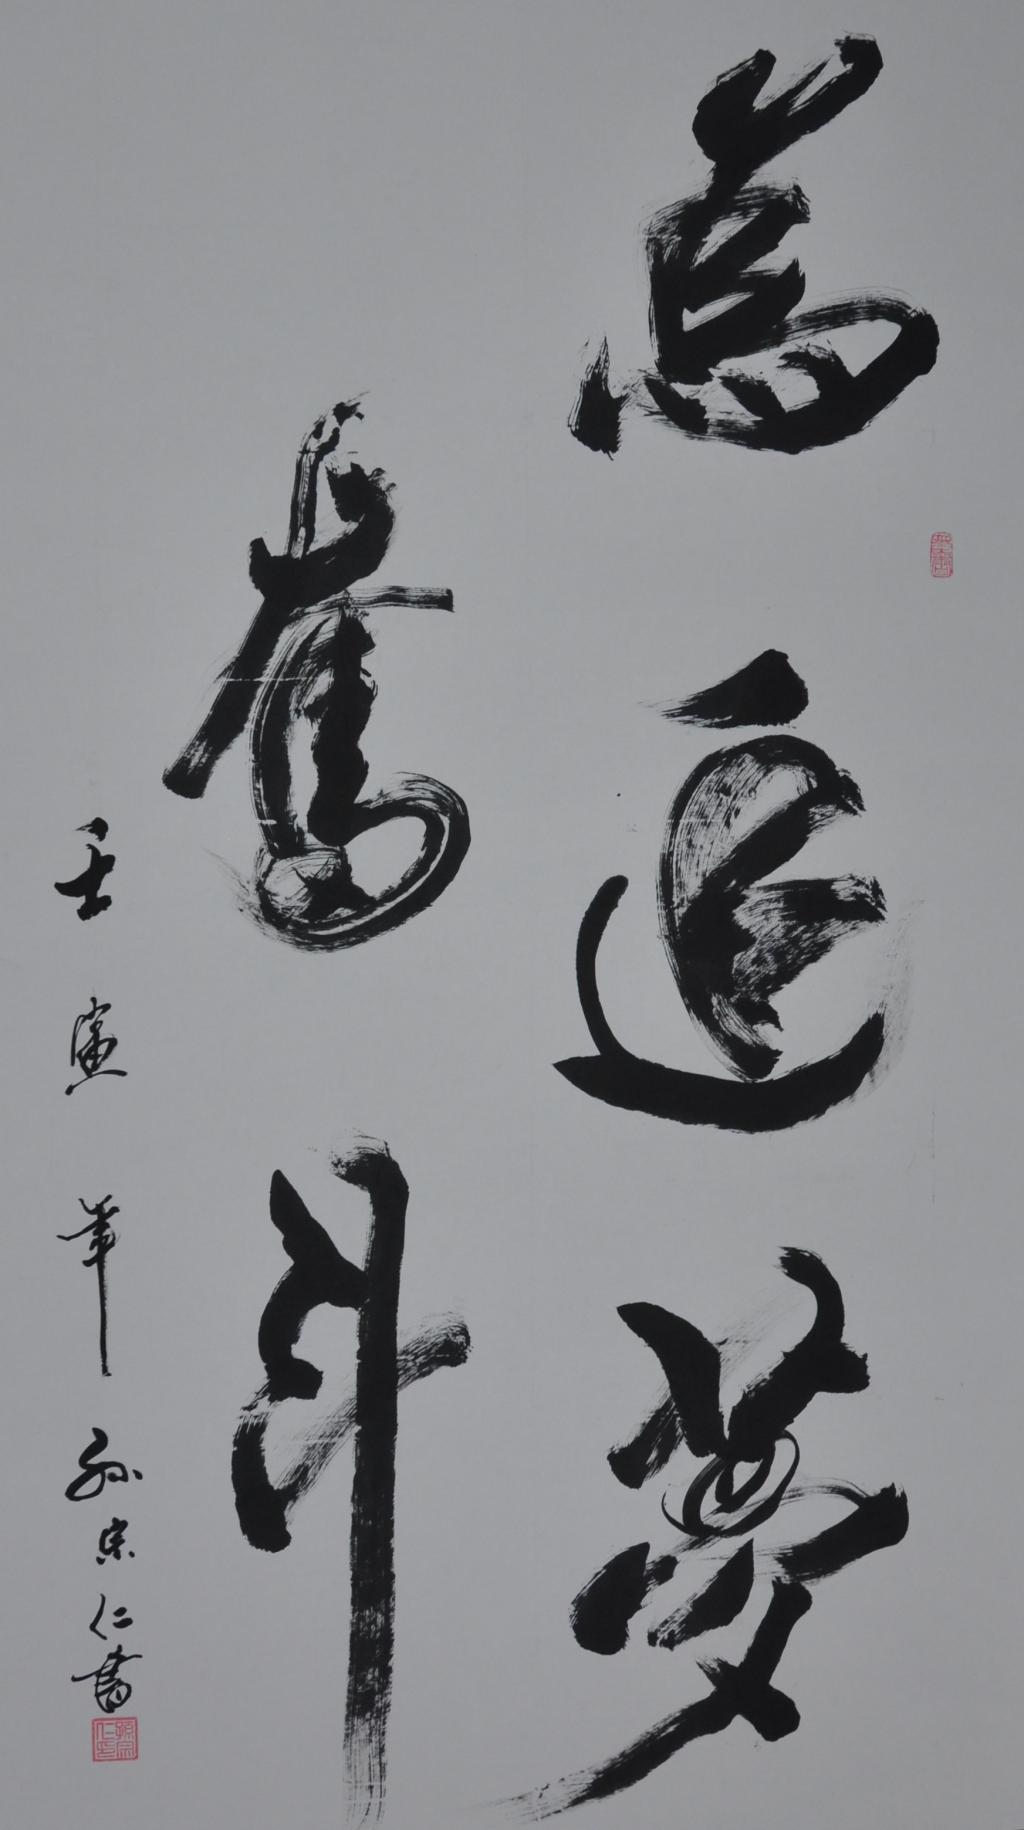 為追夢
奮斗
壬寅年孫宗仁書